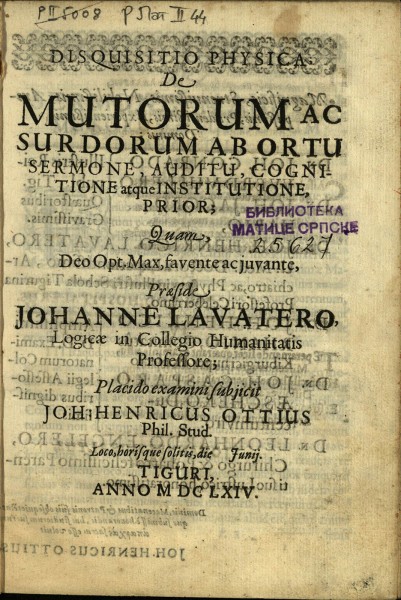 PII 5008
DISQUISITIO PHYSICA.
De
MUTORUM AC
SURDORUM AB ORTU
SERMONE, AUDITU, COGNI-
TIONE atque INSTITUTIONE,
PRIOR;
БИБЛИОТЕКА
МАТИЦЕ СРПСКЕ
25627
Quam,
Deo Opt. Max, favente ac juvante,
Præside
JOHANNE LAVATERO,
Logicæ in Collegio Humanitatis
Professore;
Placido examini subjicit
JOH: HENRICUS OTTIUS
Phil. Stud.
Loco, horisque solitis, die Junij.
TIGURI,
ANNO M DC LXIV.